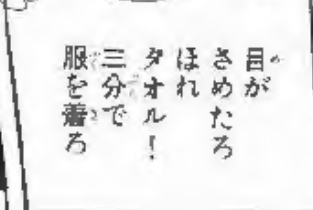 目が
さめたろ
ほれ
タオル!
三分で
服を着ろ